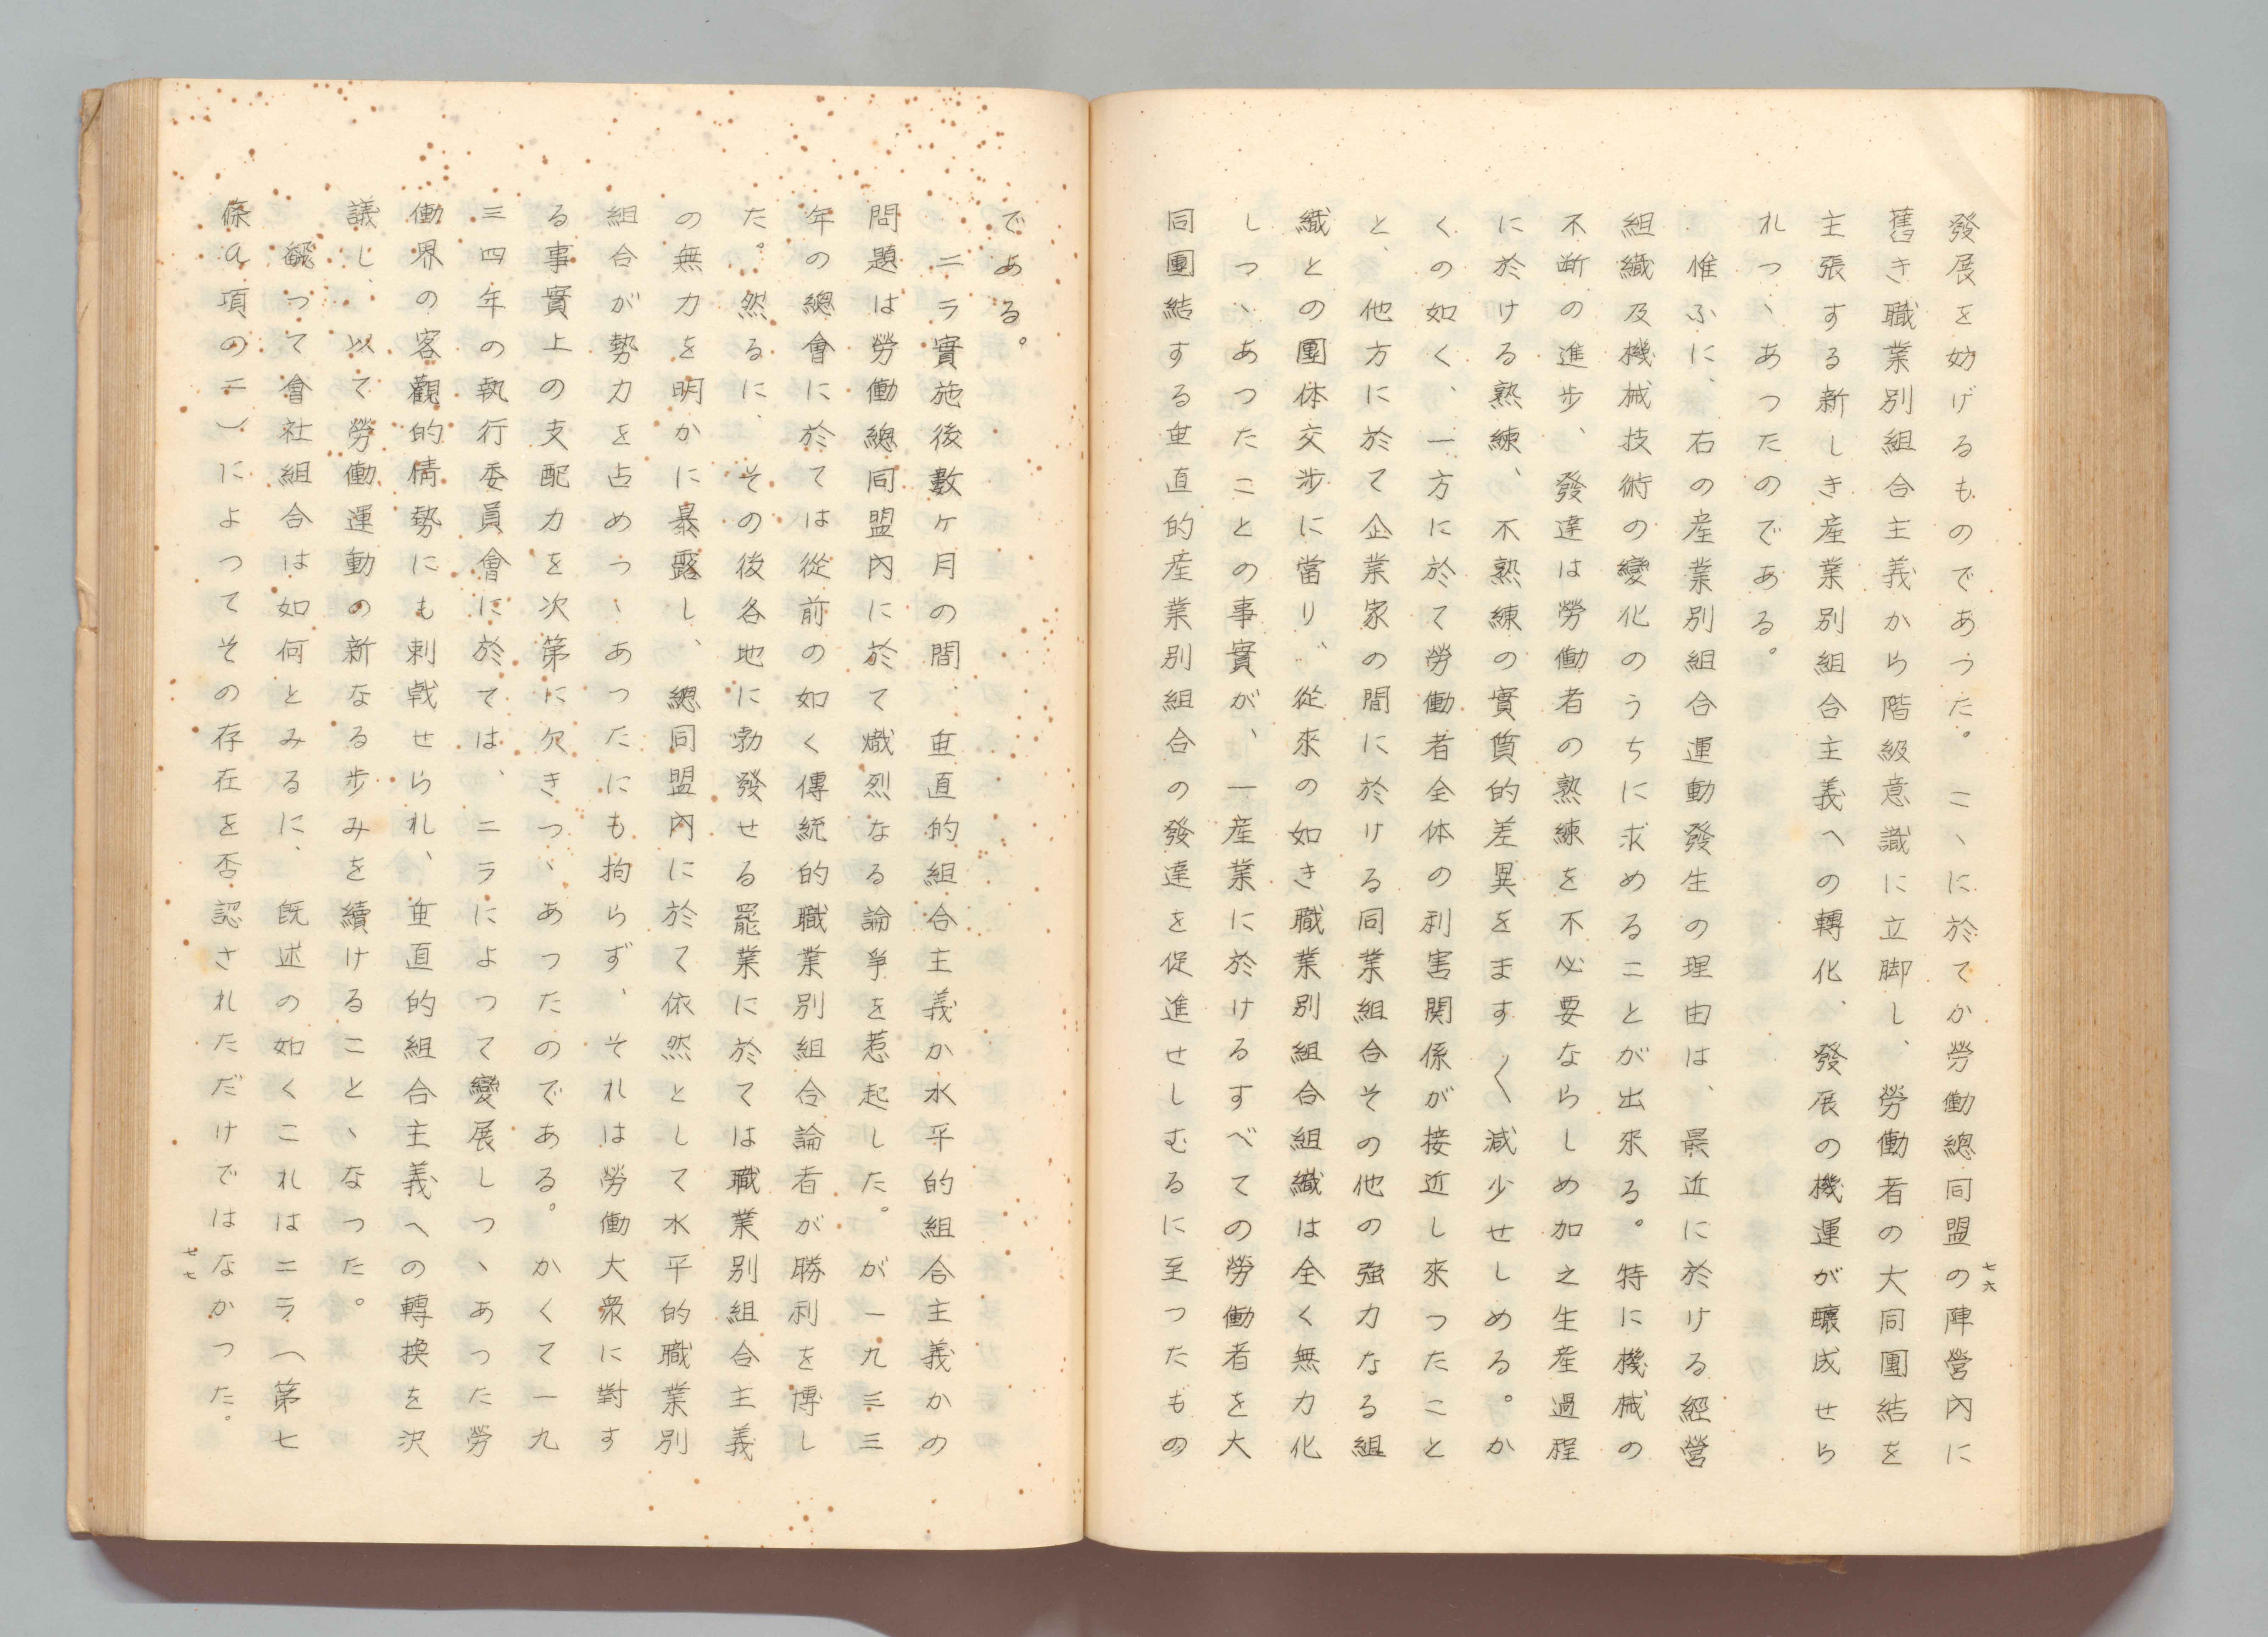 發展を妨げるものであつた。こゝに於てか勞働總同盟の陣營內に
舊き職業別組合主義から階級意識に立脚し、勞働者の大同團結を
主張する新しき産業別組合主義への轉化、發展の機運が釀成せら
れつゝあつたのである。
惟ふに、右の産業別組合運動發生の理由は、最近に於ける經營
組織及機械技術の變化のうちに求めることが出來る。特に機械の
不断の進步、發達は勞働者の熟練を不必要ならしめ加之生産過程
に於ける熟練、不熟練の實質的差異をます〱減少せしめる。か
くの如く、一方に於て勞働者全体の利害関係が接近し來つたこと
と、他方に於て企業家の間に於ける同業組合その他の強力なる組
織との團体交涉に當り、從來の如き職業別組合組織は全く無力化
しつゝあつたことの事實が、一産業に於けるすべての勞働者を大
同團結する垂直的産業別組合の發達を促進せしむるに至つたもの
七六
である。
ニラ實施後數ヶ月の間、垂直的組合主義か水平的組合主義かの
問題は勞働總同盟內に於て熾烈なる論爭を惹起した。が一九三三
年の總會に於ては從前の如く傳統的職業別組合論者が勝利を博し
た。然るに、その後各地に勃發せる罷業に於ては職業別組合主義
の無力を明かに暴露し、總同盟內に於て依然として水平的職業別
組合が勢力を占めつゝあつたにも拘らず、それは勞働大衆に對す
る事實上の支配力を次第に欠きつゝあつたのである。かくて一九
三四年の執行委員會に於ては、ニラによつて變展しつゝあつた勞
働界の客觀的情勢にも刺戟せられ、垂直的組合主義への轉換を決
議し、以て勞働運動の新なる步みを續けることゝなつた。
飜つて會社組合は如何とみるに、既述の如くこれはニラ（第七
條a項の二）によつてその存在を否認されただけではなかつた。
七七